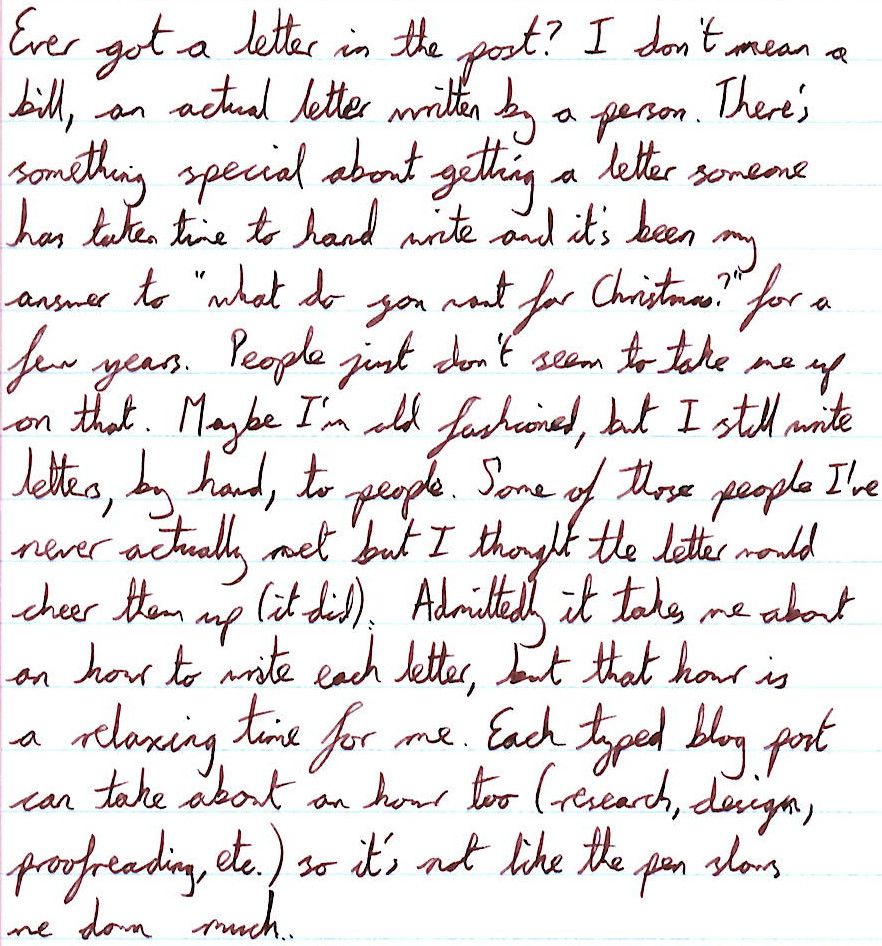 Ever got a letter in the post? I don't mean a
bill, an actual letter written by a person. There's
something special about getting a letter someone
has taken time to hand write and it's been my
answer to "what do you want for Christmas?" for a
few years. People just don't seem to take me up
on that. Maybe I'm old fashioned, but I still write
letters, by hand, to people. Some of those people I've
never actually met but I thought the letter would
cheer them up (it did). Admittedly it takes me about
an hour to write each letter, but that hour is
a relaxing time for me. Each typed blog post
can take about an hour too (research, design,
proofreading, etc.) so it's not like the pen slows
me down much.